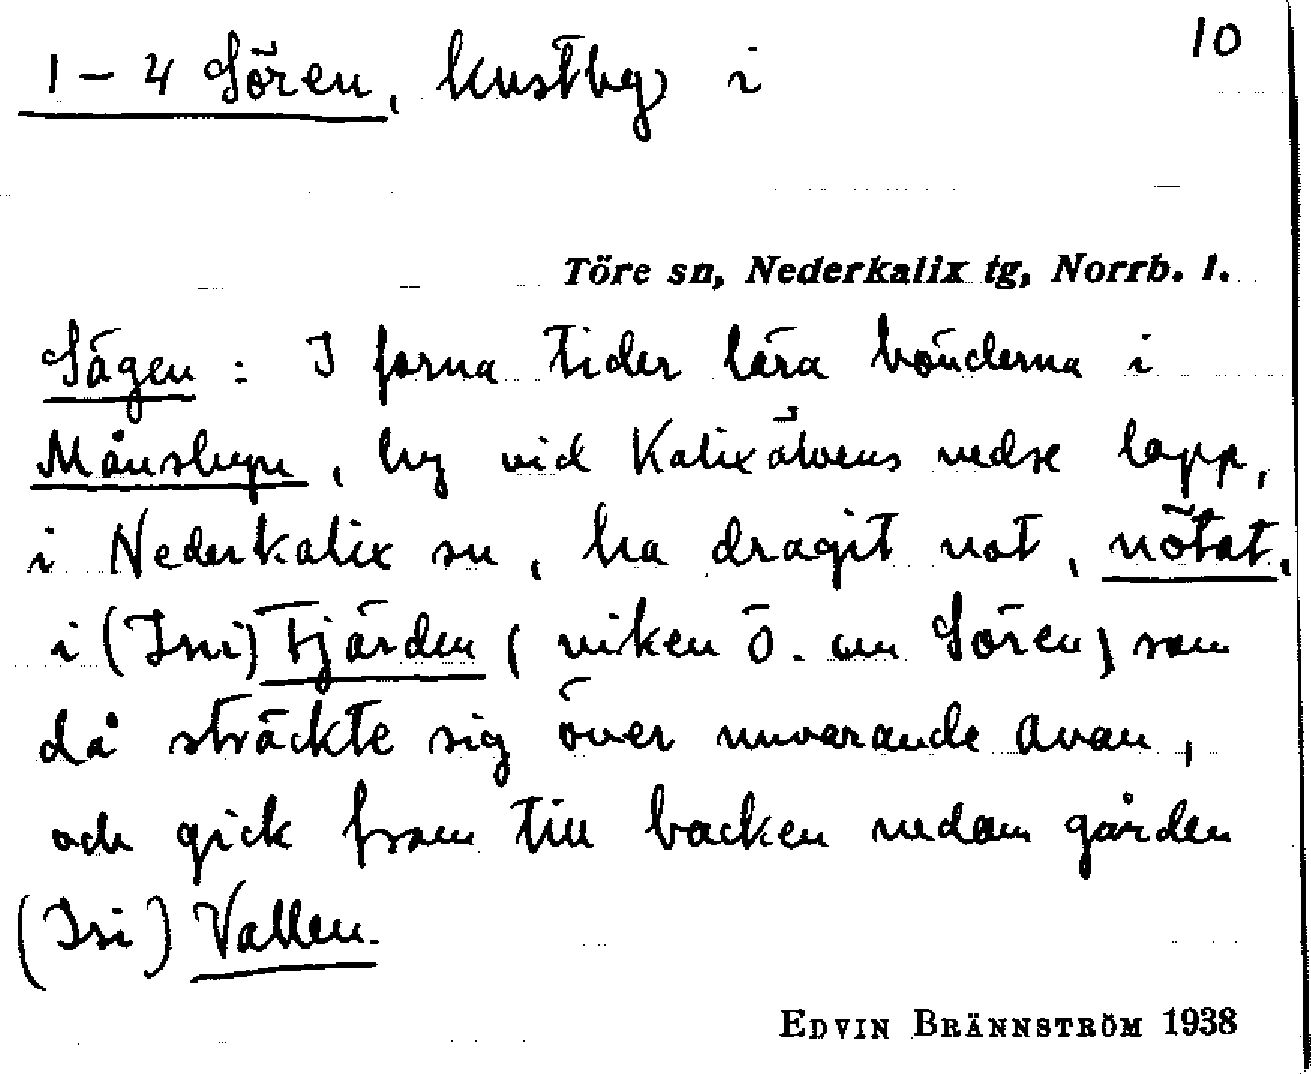 10
1 – 4 Sören, kustby i
Töre sn, Nederkalix tg, Norrb. l.
Sägen : I forna tider lära bönderna i
Månsbyn, by vid Kalixälvens nedre lopp,
i Nederkalix sn, ha dragit not, nötat,
i (Ini) Fjärden (viken ö. om Sören) som
då sträckte sig över nuvarande Avan,
och gick fram till backen nedom gården
(Isi) Vallen.
EDVIN BRÄNNSTRÖM 1938